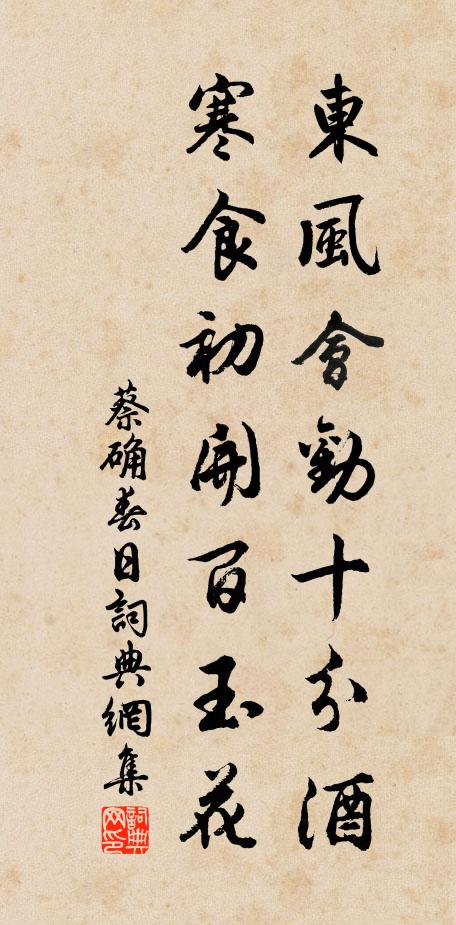 東風會勸十分酒
寒食初開百玉花
蔡确春日詞典網集
詞典网印